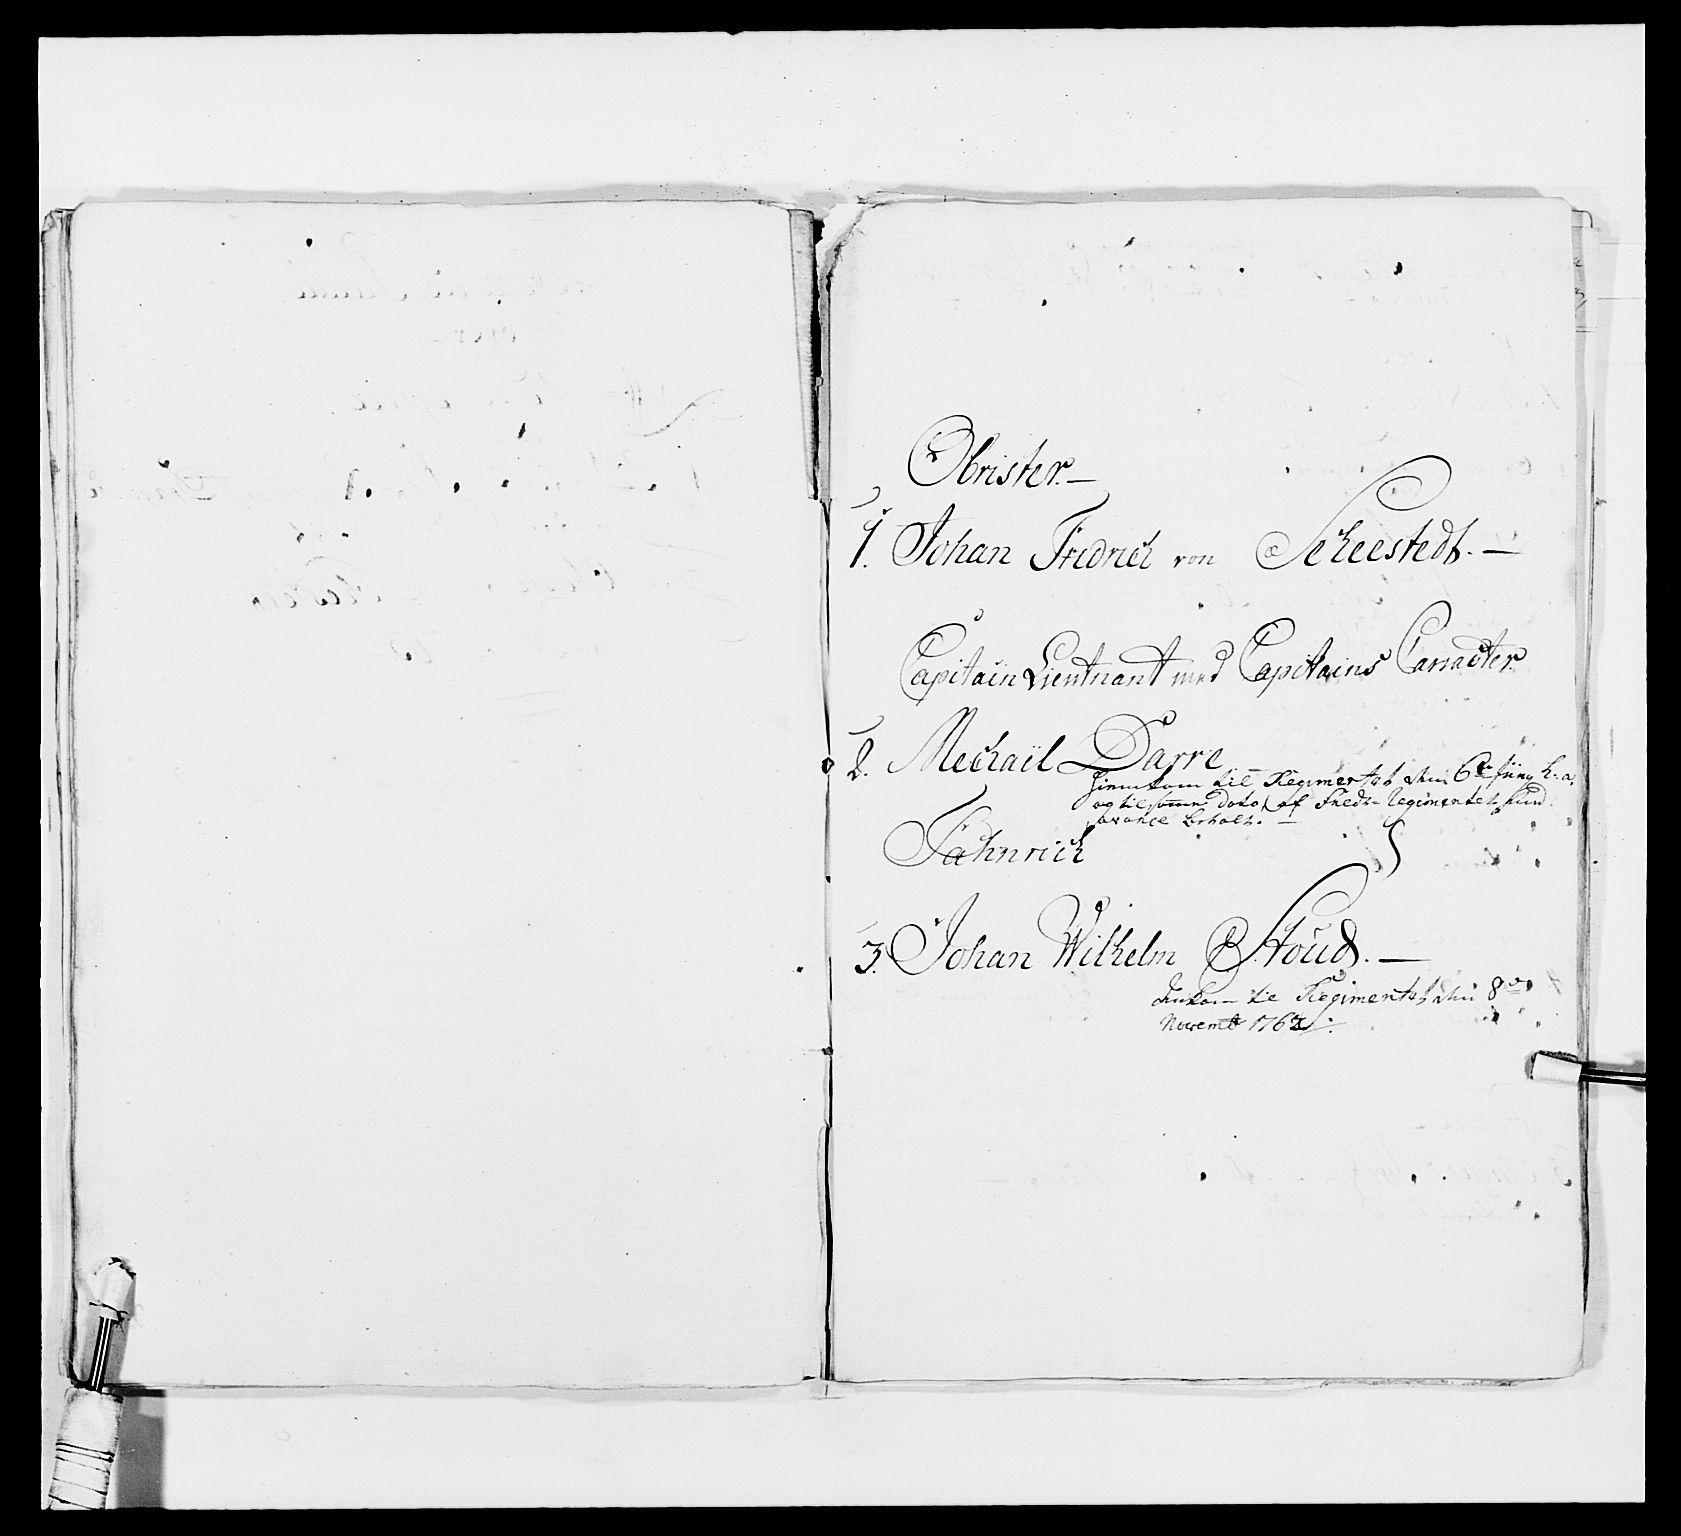 Obrister. —
1. Johan Fridrich von Seheestedt. —
Capitain Lieutnant med Capitains Caracter
2. Mechaïl Darre
hiemkom til Regimentet den 6te Juny h. a.
og til samme Dato af Regimentet
avance beholt. —
Fähnrich
3. Johan Wilhelm Stoud. —
Indkom til Regimentet den 8de
Novemb 1762.